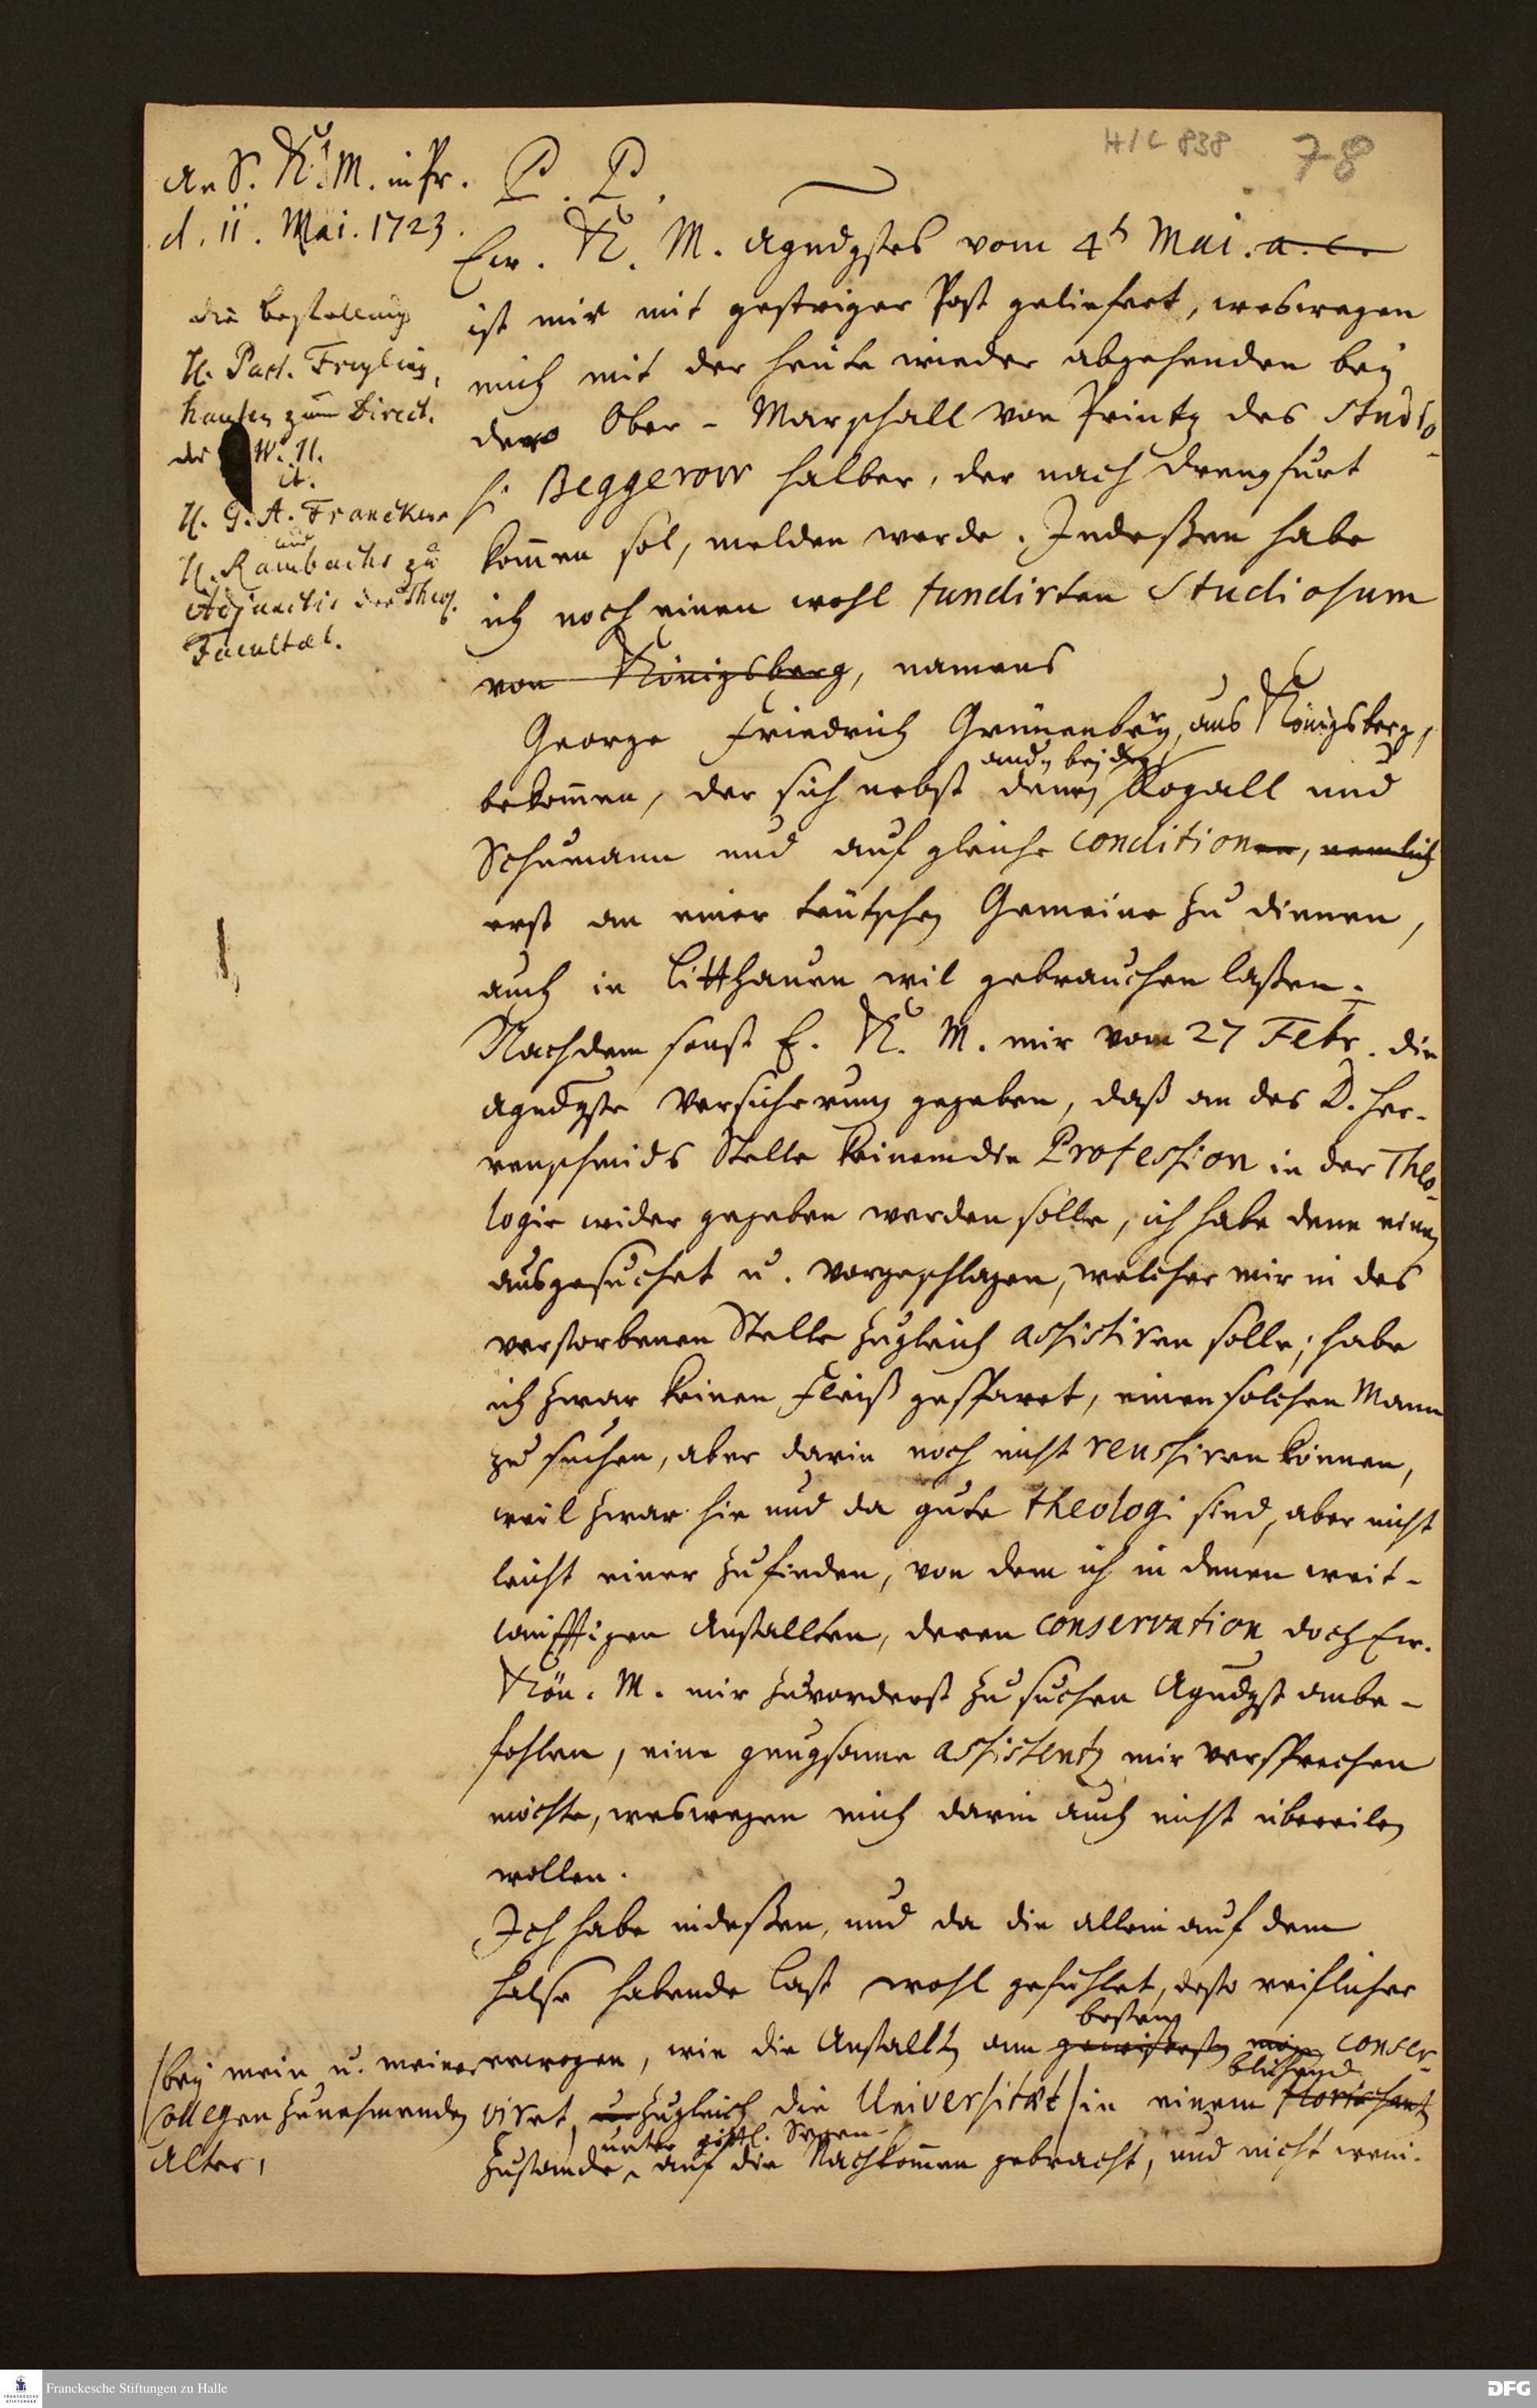 H/C 838
78
An S. K. M. in Pr.
d. 11. Mai. 1723.
P. P.
die Bestellung
H. Past. Freyling,
hausen zum Direct.
des W. H.
it.
H. G. A. Franckens
und
H. Rambachs zu
Adjunctis der Theol.
Facultät.
Ew. K. M. agndgstes vom 4t Mai. a. c.
ist mir mit gestriger Post geliefert, weswegen
mich mit der heute wieder abgehenden bey
dero Ober-Marschall von Printz des Studio-
si Beggerow halber, der nach Drengfurt
kom̅en sol, melden werde. Indeßen habe
ich noch einen wohl fundirten Studiosum
von Königsberg, namens
George Friedrich Grünenberg, aus Königsberg,
bekom̅en, der sich nebst denen andn beyden Rogall und
Schumann und auf gleiche conditionen, nemlich
erst an einer teutschen Gemeine zu dienen,
auch in Litthauen wil gebrauchen laßen.
Nachdem sonst E. K. M. mir vom 27 Febr. die
agndgste Versicherung gegeben, daß an des D. Her-
renschmids Stelle keinem die Profession in der Theo-
logie wider gegeben werden solle, ich habe denn einen
ausgesuchet u. vorgeschlagen, welcher mir in des
verstorbenen Stelle zugleich assistiren solle; habe
ich zwar keinen Fleiß gesparet, einen solchen Mann
zu suchen, aber darin noch nicht reussiren können,
weil zwar hie und da gute Theologi sind, aber nicht
leicht einer zu finden, von dem ich in denen weit-
läufftigen Anstallten, deren conservation doch Ew.
Kön. M. mir zuvorderst zu suchen Agndgst anbe-
fohlen, eine gnugsame assistentz mir versprechen
möchte, weswegen mich darin auch nicht übereilen
wollen.
Ich habe indeßen, und da die allein auf dem
Halse habende Last wohl gefühlet, desto reiflicher
erwogen, wie die Anstallten am gewissesten besten conser-
viret, u. zugleich die Universität / in einem florissant blühend
Zustande unter göttl. Segen auf die Nachkom̅en gebracht, und nicht weni-
/ bey mein u. meiner
Collegen zunehmenden
Alter,
Franckesche Stiftungen zu Halle
DFG